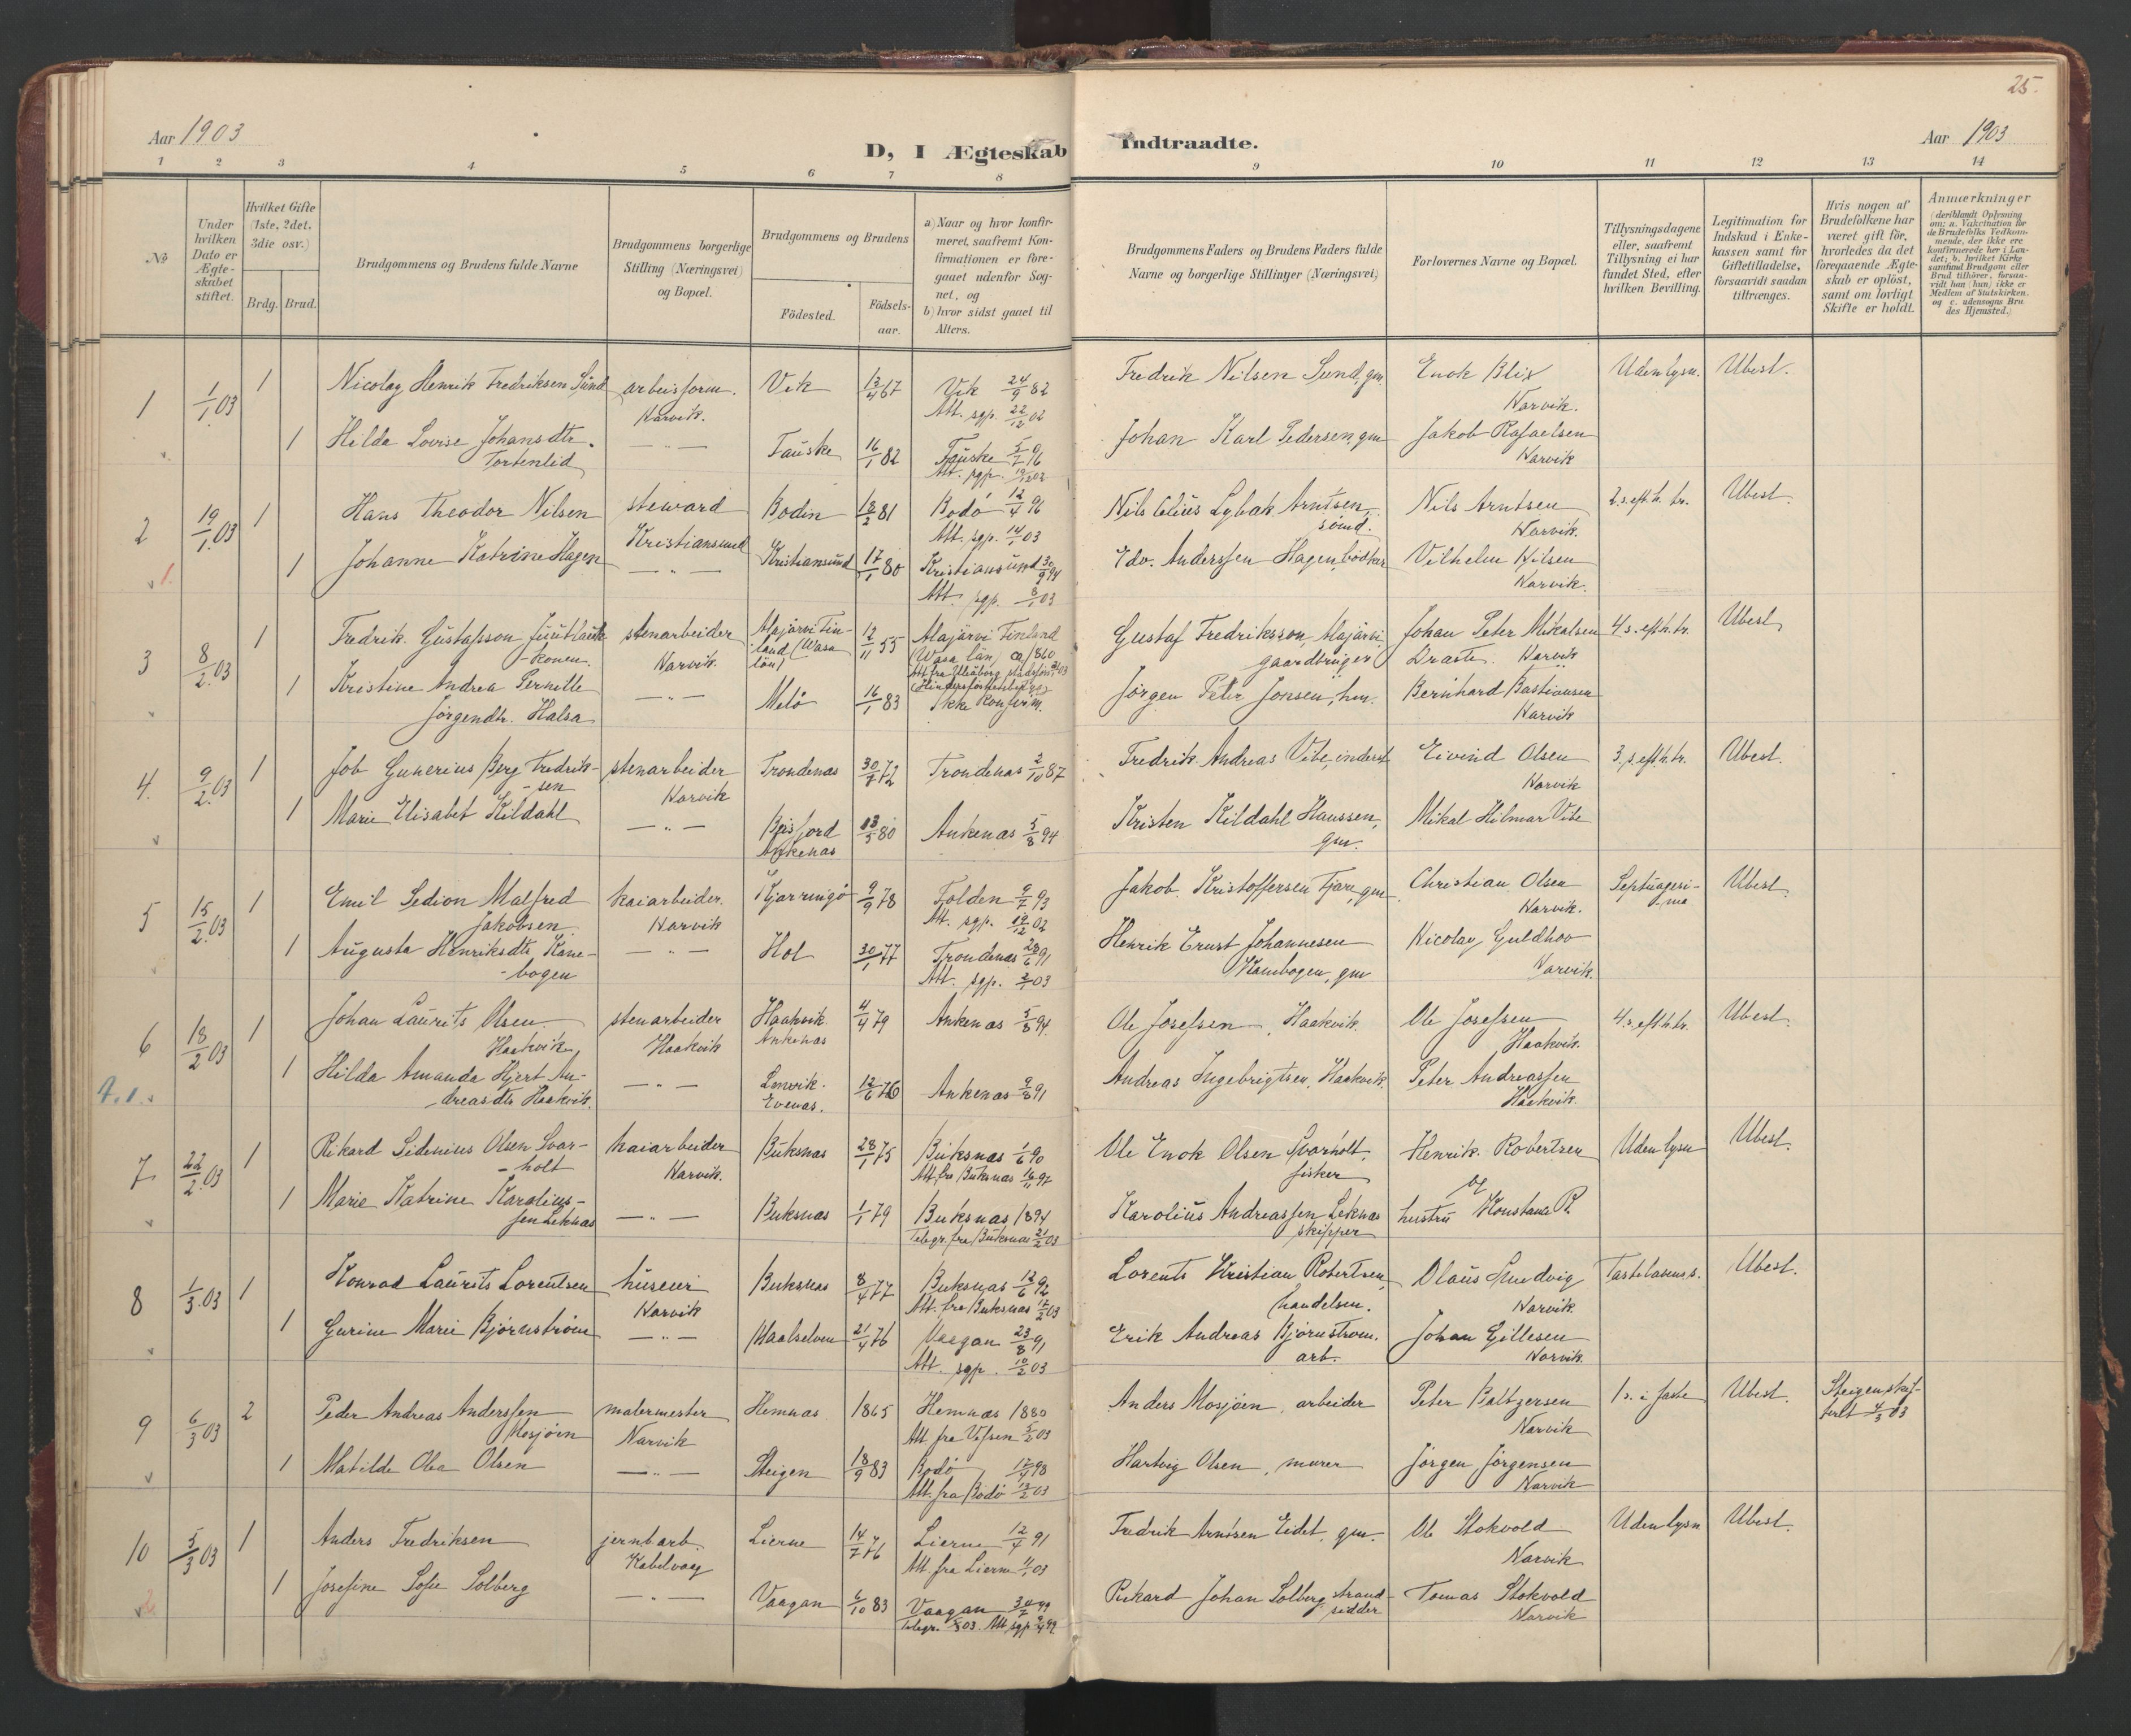 25.
Aar 1903
D, I Ægteskab Indtraadte.
Aar 1903
1 2 3 4 5 6 7 8 9 10 11 12 13 14
No
Under hvilken Dato er Ægteskabet stiftet.
Hvilket Gifte (1ste, 2det, 3die osv.)
Brdg. Brud.
Brudgommens og Brudens fulde Navne
Brudgommens borgerlige Stilling (Næringsvei) og Bopæl.
Brudgommens og Brudens
Födested.
Födselsaar.
a) Naar og hvor konfirmeret, saafremt Konfirmationen er foregaaet udenfor Sognet, og
b) hvor sidst gaaet til Alters.
Brudgommens Faders og Brudens Faders fulde Navne og borgerlige Stillinger (Næringsvei)
Forlovernes Navne og Bopæl.
Tillysningsdagene eller, saafremt Tillysning ei har fundet Sted, efter hvilken Bevilling.
Legitimation for Indskud i Enkekassen samt for Giftetilladelse, forsaavidt saadan tiltrænges.
Hvis nogen af Brudefolkene har været gift för, hvorledes da det foregaaende Ægteskab er oplöst, samt om lovligt Skifte er holdt.
Anmærkninger
(deriblandt Oplysning om: a. Vakcination for de Brudefolks Vedkommende, der ikke ere konfirmerede her i Landet; b. hvilket Kirkesamfund Brudgom eller Brud tilhörer, forsaavidt han (hun) ikke er Medlem af Statskirken, og c. udensogns Brudes Hjemsted.)
1 1/1.03 1 Nicolay Henrik Fredriksen Sund arbeisform. Vik 13/4 67 Vik 24/9 82 Fredrik Nilsen Sund, gm. Enok Blix Uden lysn. Ubest.
Narvik. Att. sgp. 22/12 02 Narvik.
1 Hilda Lovise Johansdtr. — " — Fauske 16/1 82 Fauske 5/7 96 Johan Karl Pedersen, gm Jakob Rafaelsen
Tortenlid Att. sgp. Narvik
2 19/1.03 1 Hans Theodor Nilsen steward Bodin 81 Bodö 12/4 96 Nils Arntsen, Nils Arntsen 2.s.eft.h.tr. Ubest.
Kristiansund Att. sgp. 14/1 03 Narvik.
1. 1 Johanne Katrine Hagen — " — Kristiansund 17/1 80 Kristiansund 30/9 94 Edv. Anderssen Hagen, bödker Vilhelm Nilsen
Att. sgp. 8/1 03 Narvik.
3 8/2.03 1 Fredrik Gustafsson stenarbeider Alajärvi Finland (Wasa län) 12/11 55 Alajärvi Finland Gustaf Fredriksson, Alajärvi Johan Peter Mikalsen 4.s.eft.h.tr. Ubest.
-konen. Narvik. (Wasa län) ca 1860 gaardbruger Narvik
1 Kristine Andrea Pernille — " — Melö 16/1 83 Ikke konfirm. Jörgen Peter Jonsen, hm. Bernhard Bastiansen
Jörgendtr. Halsa Narvik
4. 9/2.03 1 Job Gunerius Berg Fredrik- stenarbeider Trondenas 72 Trondenas 2/10 87 Fredrik Andreas Vibe, inderst Eivind Olsen 3.s.eft.h.tr. Ubest.
-sen Narvik Narvik
1 Marie Elisabet Kildahl — " — Beisfjord 80 Ankenas 5/8 94 Kristen Kildahl Hanssen, Mikal Hilmar Vibe
Ankenas gm.
5 15/2.03 1 Emil Sedion Malfred kaiarbeider. Kjerringö 9/9 78 Folden 9/7 93 Jakob Kristoffersen Tjare, gm Christian Olsen Septuagesi- Ubest.
Jakobsen Narvik Att. sgp. 19/12 02 Narvik. ma
1 Augusta Henriksdtr. Kane- — " — Hol 30/1 77 Trondenas 28/6 91 Henrik Ernst Johannesen Nicolay Guldhov
-bogen Att. sgp. 03 Kanebogen, gm Narvik.
6 18/2.03 1 Johan Laurits Olsen stenarbeider Haakvik 4/4 79 Ankenas 5/8 94. Ole Josefsen, Haakvik Ole Josefsen 4.s.eft.h.tr. Ubest.
Haakvik Haakvik Ankenas Haakvik.
1 Hilda Amanda Hjert An- — " — Lenvik. 12/6 76 Ankenas 9/8 91 Andreas Ingebrigtsen, Haakvik. Peter Andreassen
-dreasdtr. Haakvik. Evenas. Haakvik.
7 22/2.03 1 Rikard Sidenius Olsen Svar- kaiarbeider Buksnas 28/1 75 Buksnas 1/6 90 Ole Enok Olsen Svarholt, Henrik Robertsen Uden lysn Ubest.
-holt Narvik. Att. fra Buksnas 16/11 97 fisker og
1 Marie Katrine Karolius- — " — Buksnas 1/1 79 Buksnas 1894 Karolius Andreassen Leknas hustru Konstance R.
sen Leknas Telegr. fra Buksnas 21/2 03 skipper
8 1/3.03 1 Konrad Laurits Lorentsen huseier Buksnas 8/4 77 Buksnas 12/6 92 Lorents Kristian Robertsen, Olaus Ludvig Fastelavens s. Ubest.
Narvik Att. fra Buksnas 17/2 03 handelsm. Narvik.
1 Gurine Marie Bjørnstrøm — " — Maalselven 21/4 76 Vaagan 23/8 91 Erik Andreas Bjørnstrom. Johan Gillesen
Att. sgp. 10/2 03 arb. Narvik.
9 6/3 03 2 Peder Andreas Anderssen malermester Hemnas 1865 Hemnas 1880 Anders Mosjöen, arbeider Peter Baltzersen 1 s. i faste Ubest. Steigen skif-
Mosjöen Narvik Att. fra Vefsen 5/2 03 Narvik tert 4/3 03
1 Matilde Olea Olsen — " — Steigen 18/9 83 Bodö 17/4 98 Hartvig Olsen, murer Jörgen Jörgensen
Att. fra Bodö 03 Narvik
10 5/3 03 1 Anders Fredriksen jernbarb. Lierne 14/7 76 Lierne 12/4 91 Fredrik Arntsen Eidet, gm. Ole Stokvold Uden lysn Ubest.
Kabelvaag Att. fra Lierne 03 Narvik
1 Josefine Sofie Solberg — " — Vaagan 83 Vaagan 30/7 99 Rikard Johan Solberg, strand- Tomas Stokvold
Telegr. 03. Att. sgp. sidder Narvik